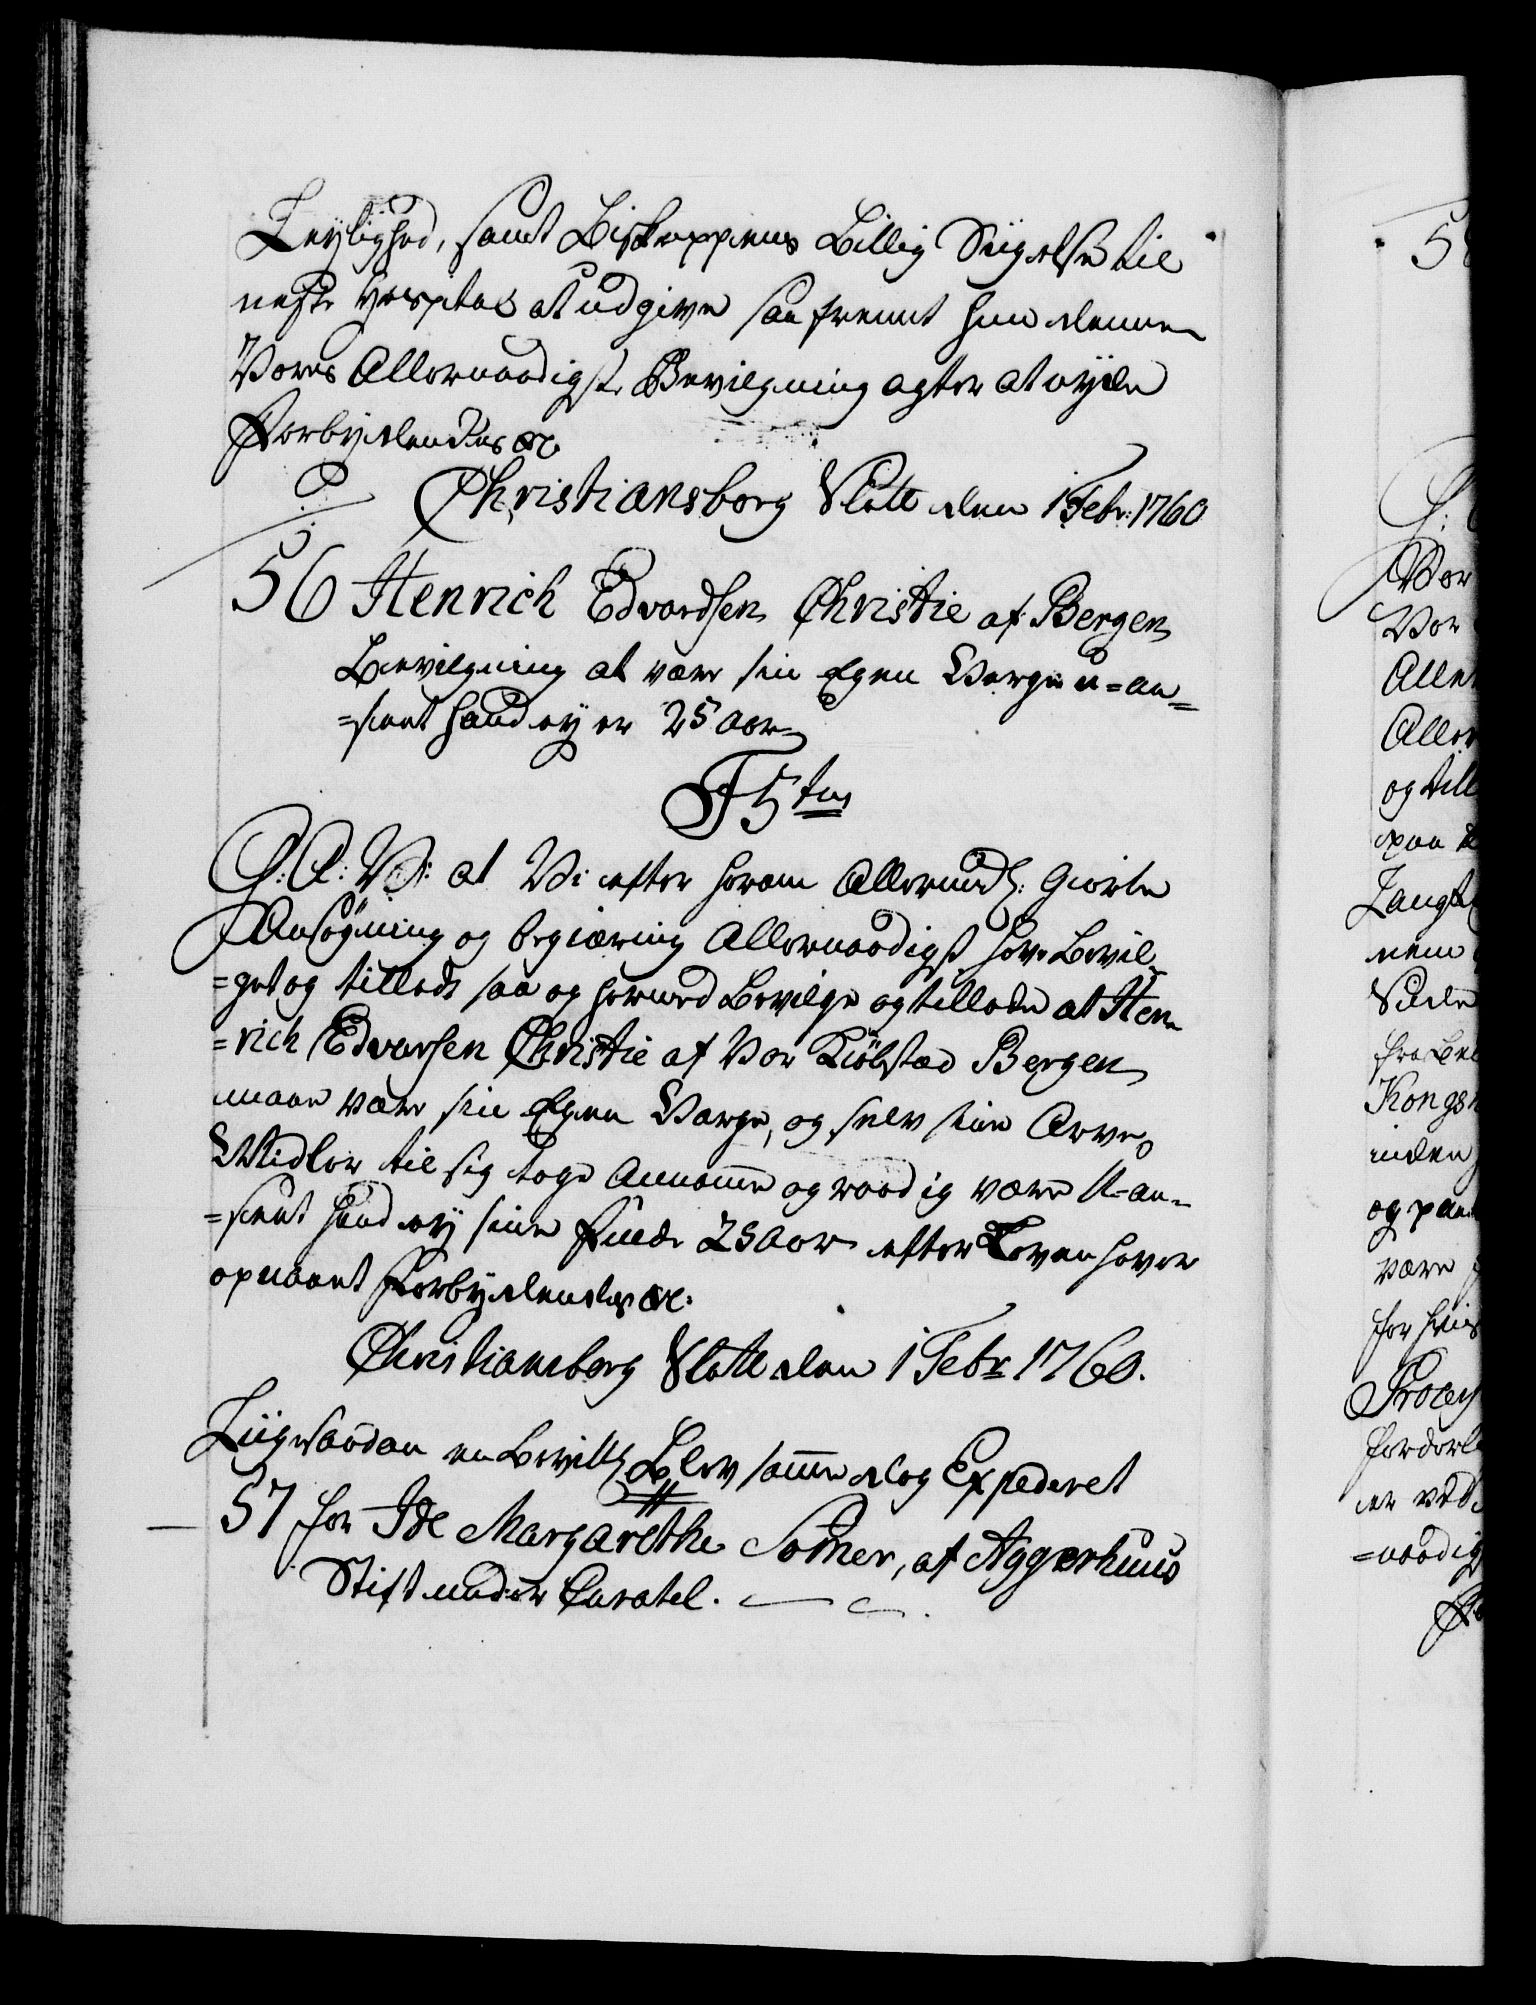 Leylighed, samt Biskoppens Billig Sigelse til
neste Hospital at udgive saa fremt hun denne
Vores Allernaadigste Bevilgning agter at nyde
Forbydendes &c.
Christiansborg Slott den 1 Febr: 1760
56 Henrich Edvardsen Christie af Bergen
Bevilgning at være sin Egen Verge u=an=
=seet hand ey er 25 aar
F 5tus
G: A: V: at Vi efter herom Allerund: giorte
Ansøgning og begiæring Allernaadigst have bevil=
=get og tilladt saa og hermed bevilge og tillade at Hen=
=rich Edvarsen Christie af Vor Kiøbstad Bergen
maae være sin Egen Verge, og selv sine Arve
Midler til sig tage annamme og raadig være U=an=
=seet hand ey sine fulde 25 aar efter Loven haver
opnaaet Forbydendes &c:
Christiansborg Slott den 1 Febr 1760.
Liigesaadan en bevilling blev samme dag Expederet
57 for Ide Margarethe Somer, af Aggerhuus
Stift under Curatel.
5
G:
Vor
Vor
Aller
Aller
og till
paa
Langt
nem
Side
fra
Kongs
inden
og paa
være
for hvis
Process
forderl
er ved
=naadig